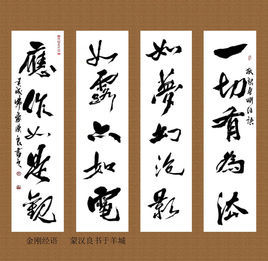 一切有為法
如夢幻泡影
如露亦如電
應作如是觀
金刚经语 蒙汉良书于羊城